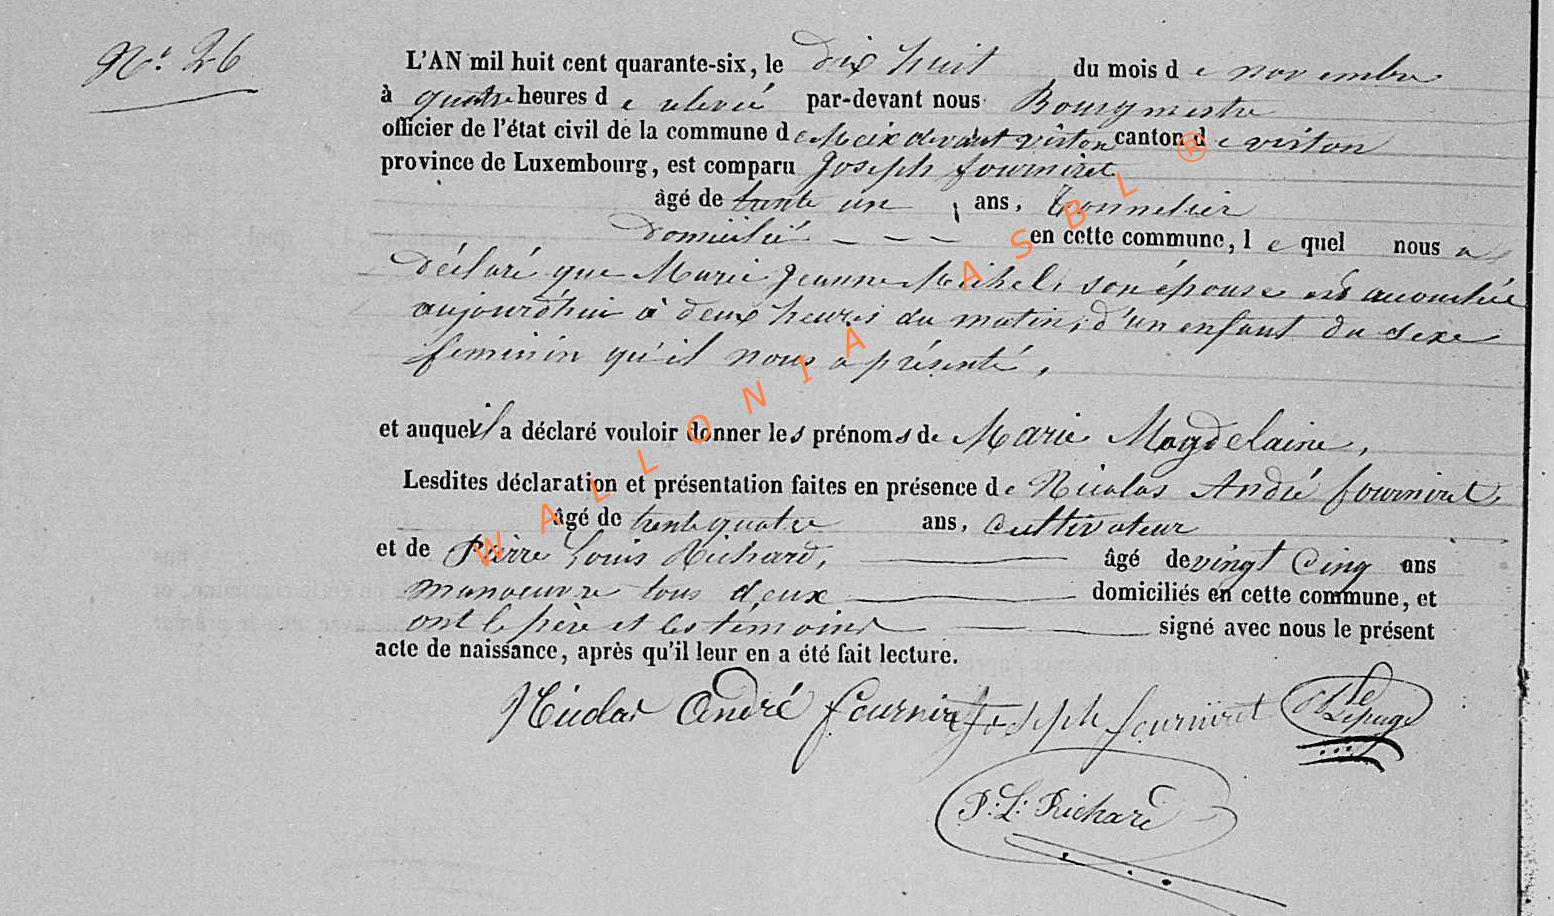 N.º 26
L'AN mil huit cent quarante-six, le dix huit du mois de novembre
à quatre heures de relevée par-devant nous Bourgmestre
officier de l'état civil de la commune de Meix devant virton canton de virton
province de Luxembourg, est comparu Joseph fourniret
âgé de trente un ans, Tonnelier
domicilié - - - en cette commune, lequel nous a
déclaré que Marie Jeanne Michel, son épouse est accouchée
aujourd'hui à deux heures du matin, d'un enfant du sexe
feminin qu'il nous a présenté,
et auquel il a déclaré vouloir donner les prénoms de Marie Magdelaine,
Lesdites déclaration et présentation faites en présence de Nicolas André fourniret,
âgé de trente quatre ans, cultivateur
et de Pierre Louis Richard, âgé de vingt cinq ans
manoeuvre tous deux domiciliés en cette commune, et
ont le père et les témoins signé avec nous le présent
acte de naissance, après qu'il leur en a été fait lecture.
Nicolas André fourniret Joseph fourniret Lepage
P: L: Richard
WALLONIA ASBL ®